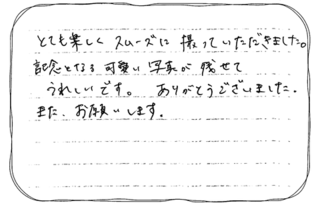 とても楽しくスムーズに撮っていただきました。
記念となる可愛い写真が残せて
うれしいです。 ありがとうございました.
また、お願いします。